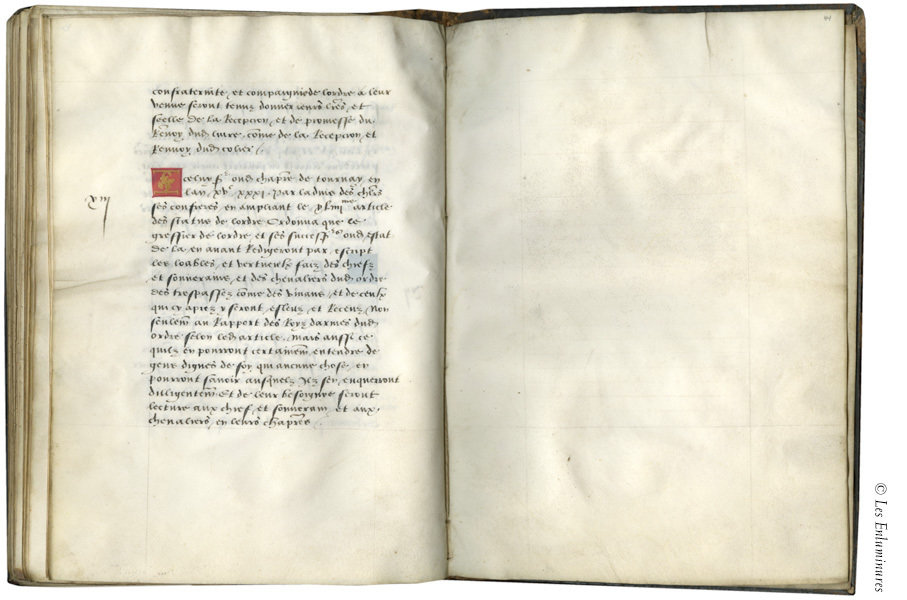 confraternite, et compaignie de lordre a leur
venue seront tenuz donner leurs lres, et
seelle de la Reception, et de promesse du
Renvoy dud livre, come de la Reception, et
Renvoy dud colier.
Iceluy sr oud chapre de tournay, en
lan, xvc xxxi. Par ladvis des chlrs
xiii
ses confreres, en ampliant le article
des statuz de lordre Ordonna que le
greffier de lordre, et ses success oud estat
de la en avant Redigeront par escript
les loables, et vertueulx faiz des chiefz
et souverains, et des chevaliers dud ordre
des trespassez, come des vivans, et de ceulx
qui cy apres y seront, esleuz, et Receuz, Non
seulem au Rapport des Roys darmes dud
ordre selon led article. Mais aussi ce
quilz en pourront certainem entendre de
gens dignes de foy qui aucune chose, en
pourront savoir ausquelz Ilz sen, enquerront
dilligentem Et de leur besoigne seront
lecture aux chief, et souverain, et aux
chevaliers, en leurs chapres.
41
© Les Enluminures